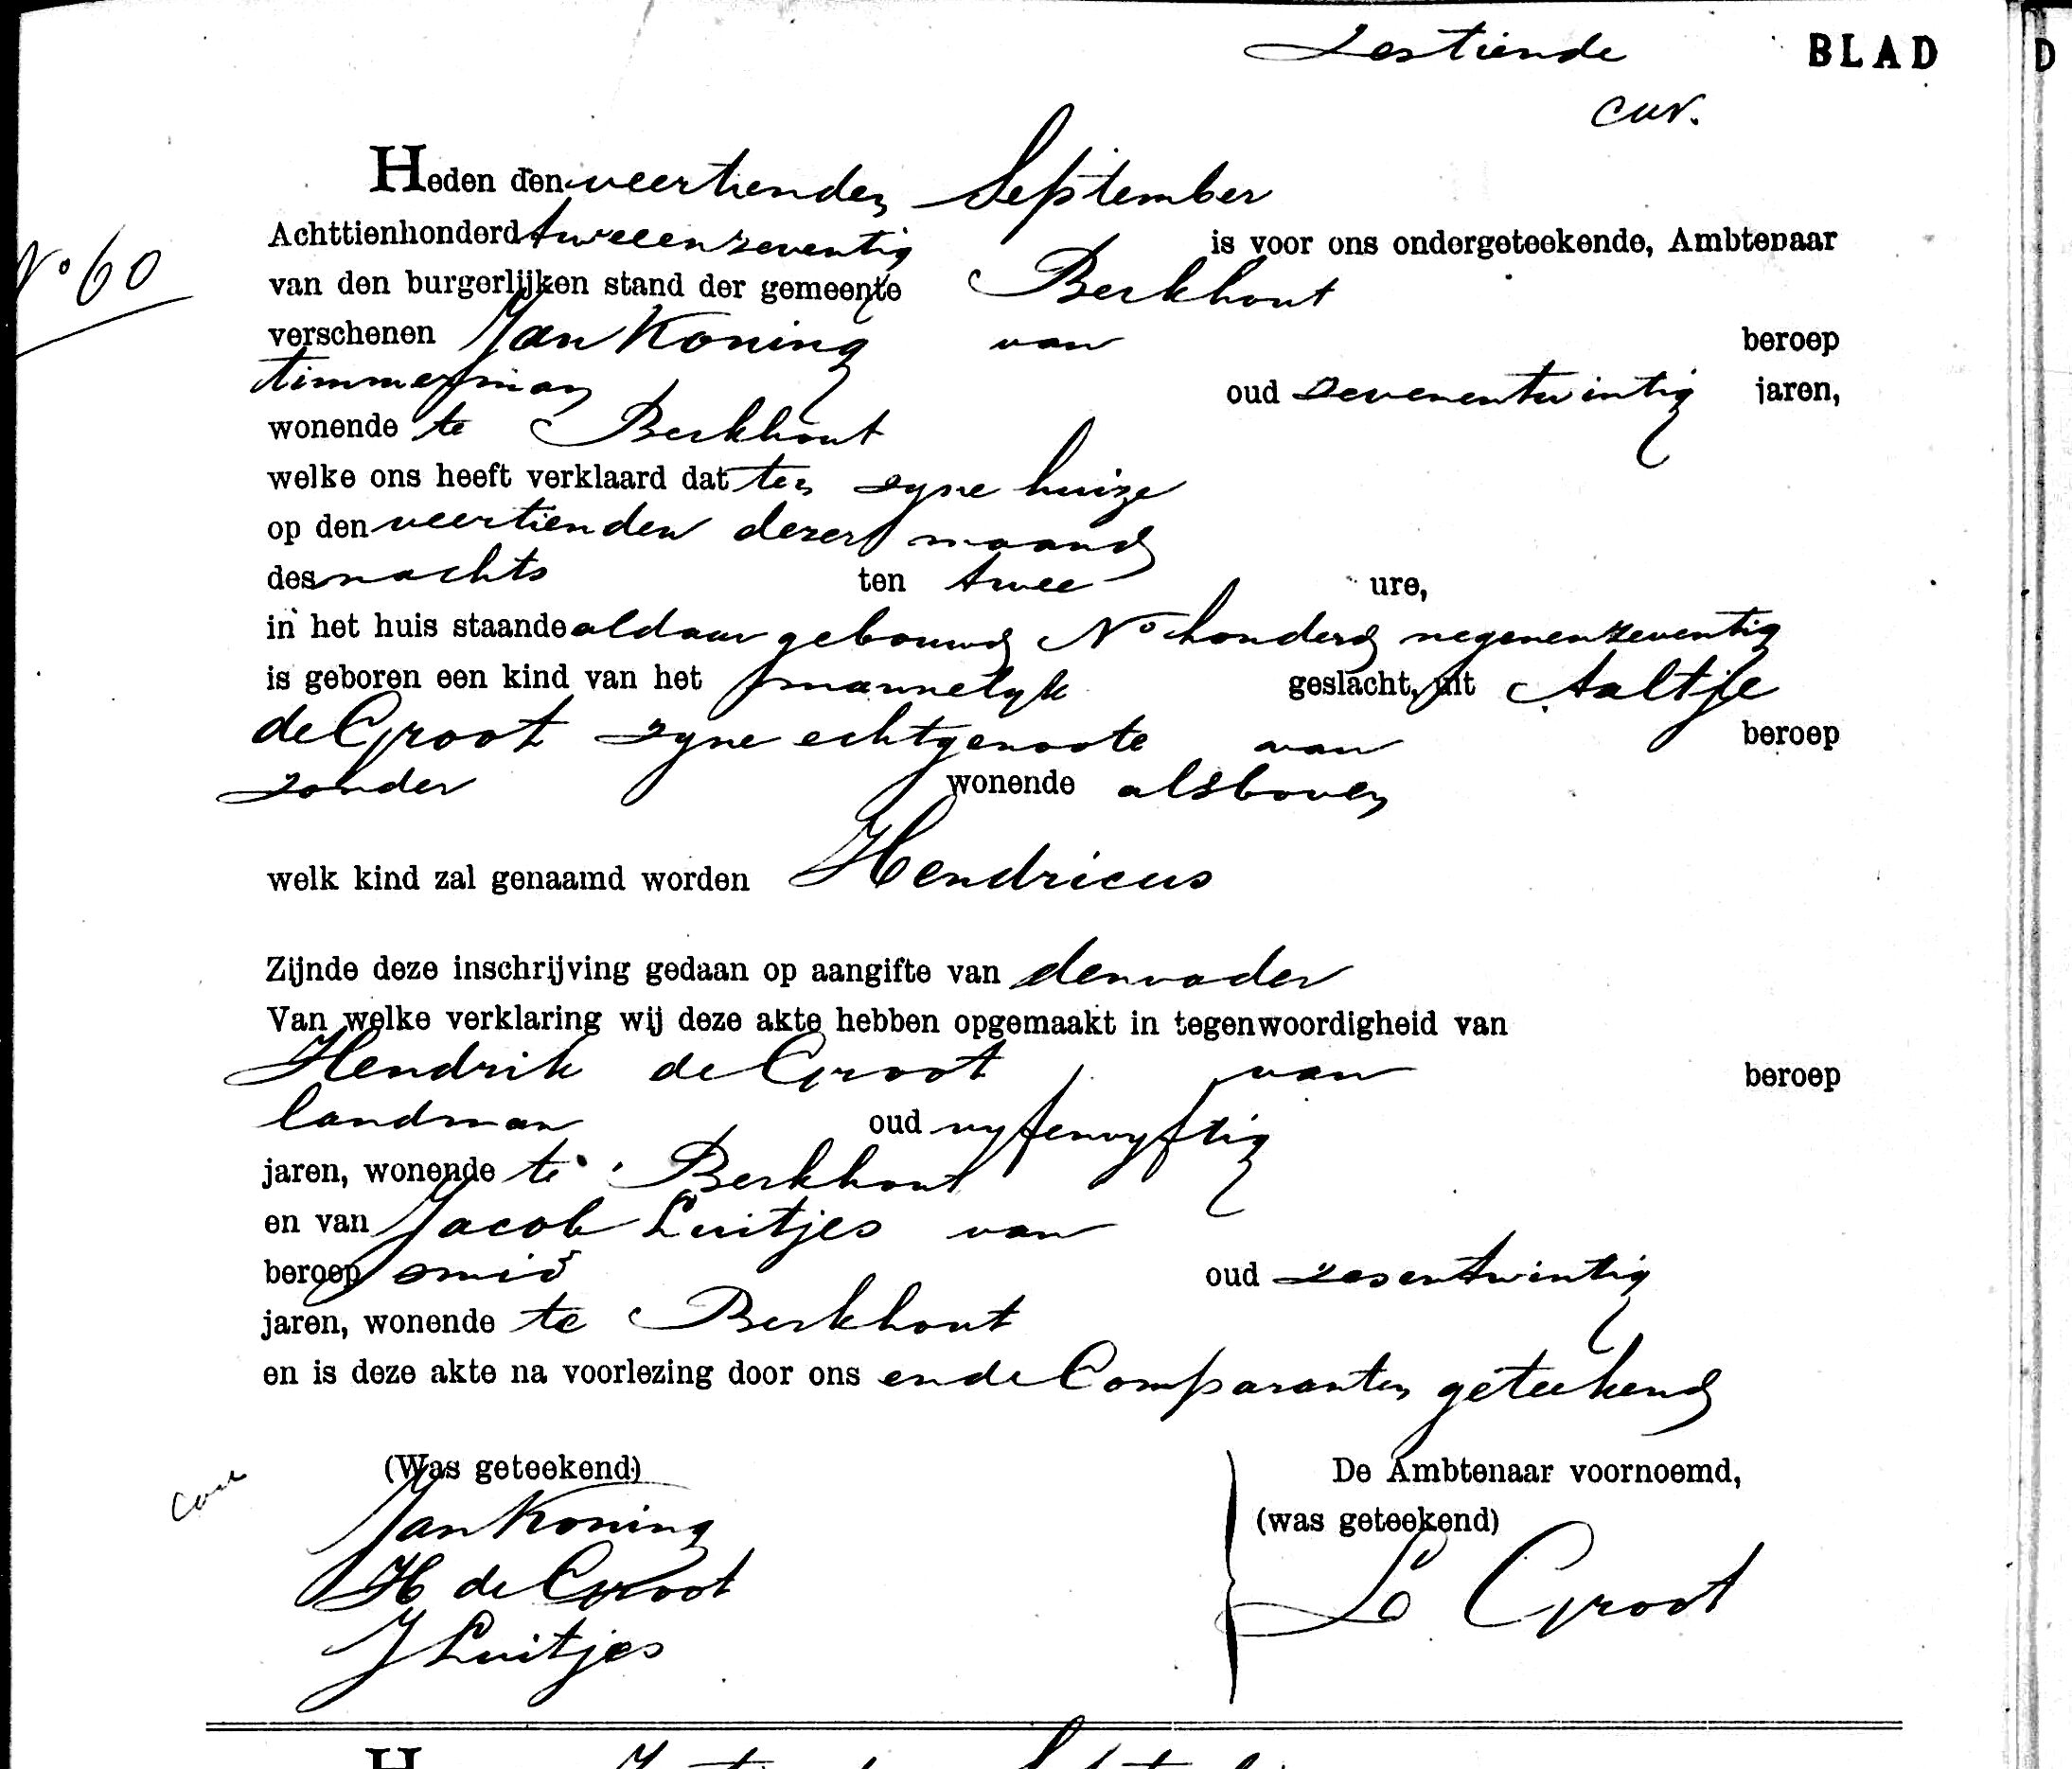 Zestiende BLAD
N° 60
Heden den veertienden September
Achttienhonderd tweeenzeventig is voor ons ondergeteekende, Ambtenaar
van den burgerlijken stand der gemeente Berkhout
verschenen Jan Koning van beroep
timmerman oud zevenentwintig jaren,
wonende te Berkhout
welke ons heeft verklaard dat ten zyne huize
op den veertienden dezer maand
des nachts ten twee ure,
in het huis staande aldaar gebouwd N° honderd negenenzeventig
is geboren een kind van het mannelyk geslacht, uit Aaltje
de Groot zyne echtgenoote van beroep
zonder wonende alsboven
welk kind zal genaamd worden Hendricus
Zijnde deze inschrijving gedaan op aangifte van den vader
Van welke verklaring wij deze akte hebben opgemaakt in tegenwoordigheid van
Hendrik de Groot van beroep
landman oud vyfenvyftig
jaren, wonende te Berkhout
en van Jacob Luitjes van
beroep smid oud zesentwintig
jaren, wonende te Berkhout
en is deze akte na voorlezing door ons en de Comparanten geteekend
(Was geteekend) De Ambtenaar voornoemd,
Jan Koning (was geteekend)
H de Groot Groot
J Luitjes